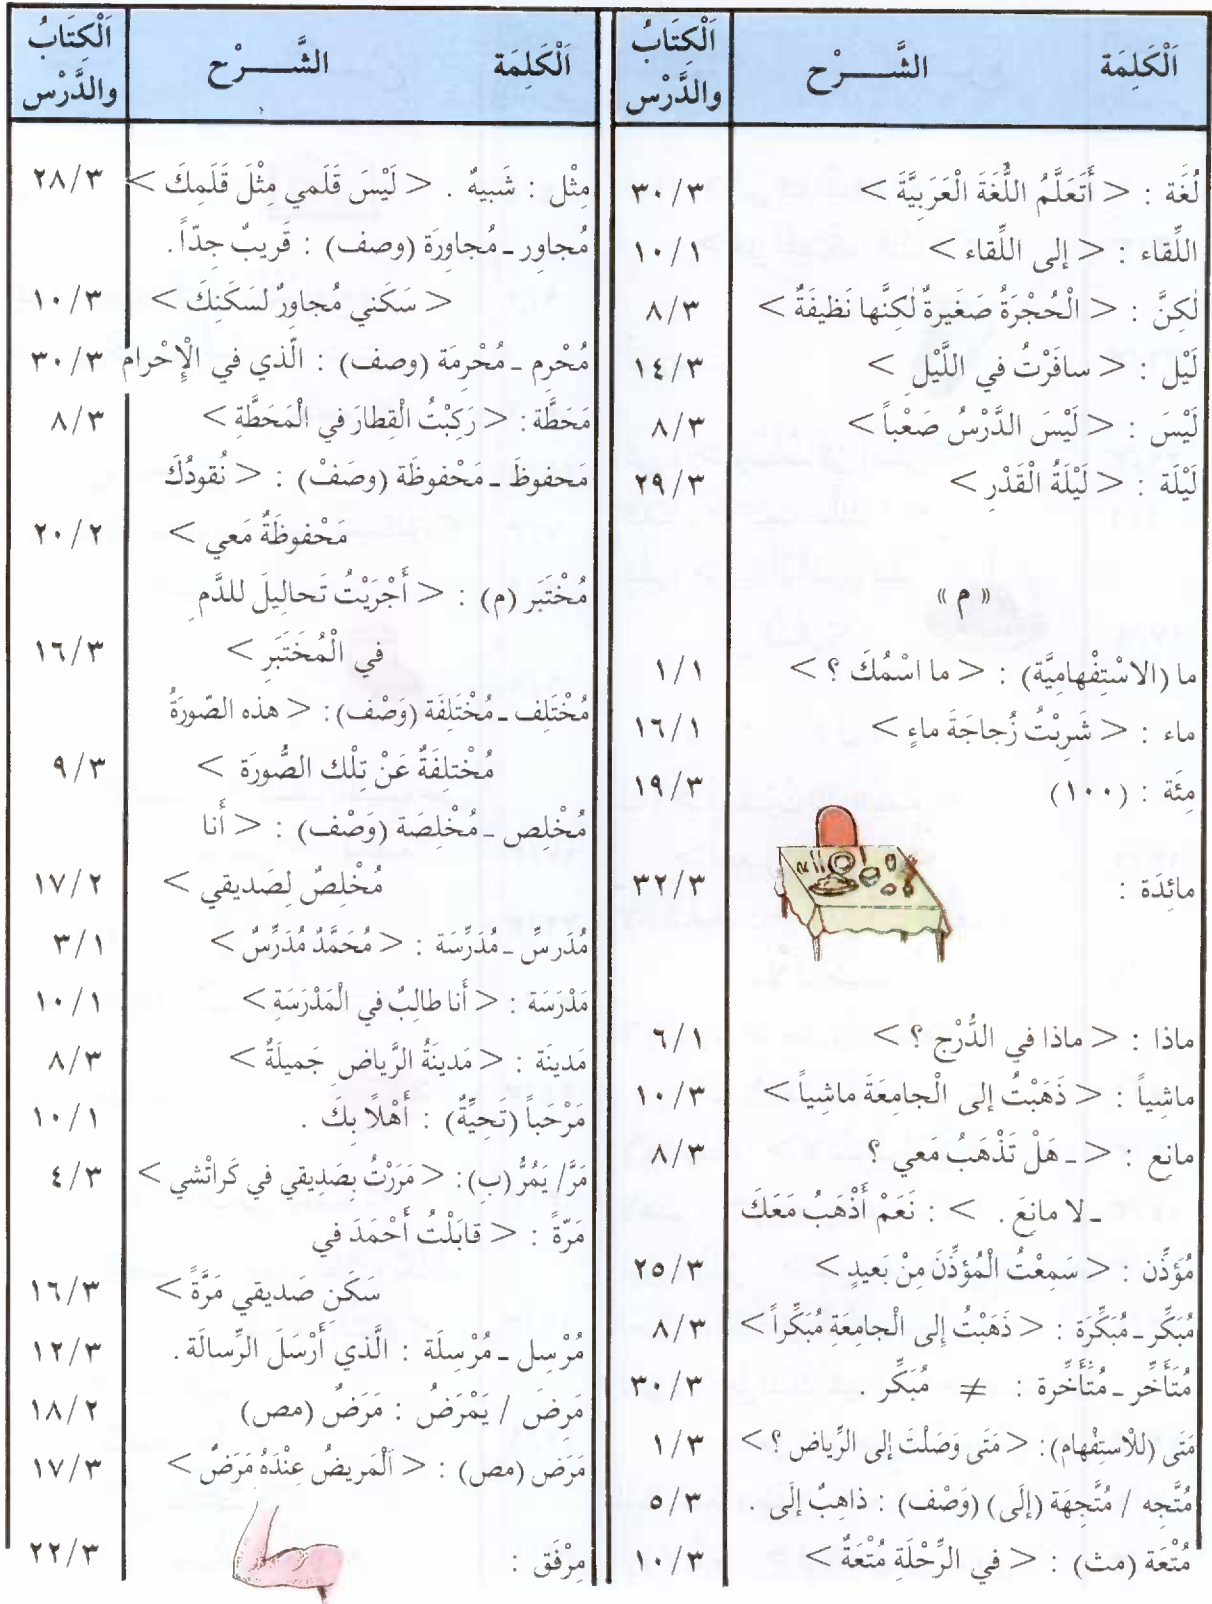 اَلْكَلِمَة الشَّـــرْح اَلْكِتَابُ والدَّرْس
لُغَة : < أَتَعَلَّمُ اللُّغَةَ الْعَرَبِيَّةَ > ٣٠/٣
اللِّقاء : < إلى اللِّقاء > ١٠/١
لٰكِنَّ : < الْحُجْرَةُ صَغيرةٌ لٰكِنَّها نَظيفَةٌ > ٨/٣
لَيْل : < سافَرْتُ في اللَّيْلِ > ١٤/٣
لَيْسَ : < لَيْسَ الدَّرْسُ صَعْباً > ٨/٣
لَيْلَة : < لَيْلَةُ الْقَدْرِ > ٢٩/٣
« م »
ما (الاسْتِفْهامِيَّة) : < ما اسْمُكَ ؟ > ١/١
ماء : < شَرِبْتُ زُجاجَةَ ماءٍ > ١٦/١
مِئَة : (١٠٠) ١٩/٣
مائِدَة : ٣٢/٣
ماذا : < ماذا في الدُّرْجِ ؟ > ٦/١
ماشِياً : < ذَهَبْتُ إلى الْجامِعَةَ ماشِياً > ١٠/٣
مانِع : < ـ هَلْ تَذْهَبُ مَعي ؟ ٨/٣
ـ لا مانِعَ . > : نَعَمْ أَذْهَبُ مَعَكَ
مُؤَذِّن : < سَمِعْتُ الْمُؤذِّنَ مِنْ بَعيدٍ > ٢٥/٣
مُبَكِّر ـ مُبَكِّرَة : < ذَهَبْتُ إِلى الْجامِعَةِ مُبَكِّراً > ٨/٣
مُتَأَخِّر ـ مُتَأَخِّرة : ≠ مُبَكِّر . ٣٠/٣
مَتَى (للْاسِتِفْهام) : < مَتَى وَصَلْتَ إلى الرِّياض ؟ > ١/٣
مُتَّجِه / مُتَّجِهَة (إلَى) (وَصْف) : ذاهِبٌ إلَى . ٥/٣
مُتْعَة (مث) : < في الرِّحْلَةِ مُتْعَةٌ > ١٠/٣
اَلْكَلِمَة الشَّـــرْح اَلْكِتَابُ والدَّرْس
مِثْل : شَبيهٌ . < لَيْسَ قَلَمي مِثْلَ قَلَمِكَ > ٢٨/٣
مُجاوِر ـ مُجاوِرَة (وصف) : قَريبٌ جِدّاً .
< سَكَني مُجاوِرٌ لسَكَنِكَ > ١٠/٣
مُحْرِم ـ مُحْرِمَة (وصف) : الّذي في الْإحْرام ٣٠/٣
مَحَطَّة : < رَكِبْتُ الْقِطارَ في الْمَحَطَّةِ > ٨/٣
مَحفوظَ ـ مَحْفوظَة (وصَفْ) : < نُقودُكَ
مَحْفوظَةٌ مَعي > ٢٠/٢
مُخْتَبَر (م) : < أَجْرَيْتُ تَحالِيلَ للدَّمِ
في الْمُخَتَبَرِ > ١٦/٣
مُخْتَلِف ـ مُخْتَلِفَة (وَصْف) : < هذه الصّورَةُ
مُخْتلِفَةٌ عَنْ تِلْك الصُّورَة > ٩/٣
مُخْلِص ـ مُخْلِصَة (وَصْف) : < أَنا
مُخْلِصٌ لِصَديقي > ١٧/٢
مُدَرسِّ ـ مُدَرِّسَة : < مُحَمَّدٌ مُدَرِّسٌ > ٣/١
مَدْرَسَة : < أَنا طالِبٌ في الْمَدْرَسَةِ > ١٠/١
مَدينَة : < مَدينَةُ الرِّياضِ جَميلَةٌ > ٨/٣
مَرْحَباً (تَحِيَّةٌ) : أَهْلًا بِكَ . ١٠/١
مَرَّ/ يَمُرُّ (ب) : < مَرَرْتُ بِصَدِيقي في كَراتْشي > ٤/٣
مَرّةً : < قابَلْتُ أَحْمَدَ في
سَكَنِ صَديقي مَرَّةً > ١٦/٣
مُرْسِل ـ مُرْسِلَة : الَّذي أَرْسَلَ الرِّسالَة . ١٢/٣
مَرِضَ / يَمْرَضُ : مَرَضٌ (مص) ١٨/٢
مَرَض (مص) : < اَلْمَريضُ عِنْدَهُ مَرَضٌ > ١٧/٣
مِرْفَق : ٢٢/٣